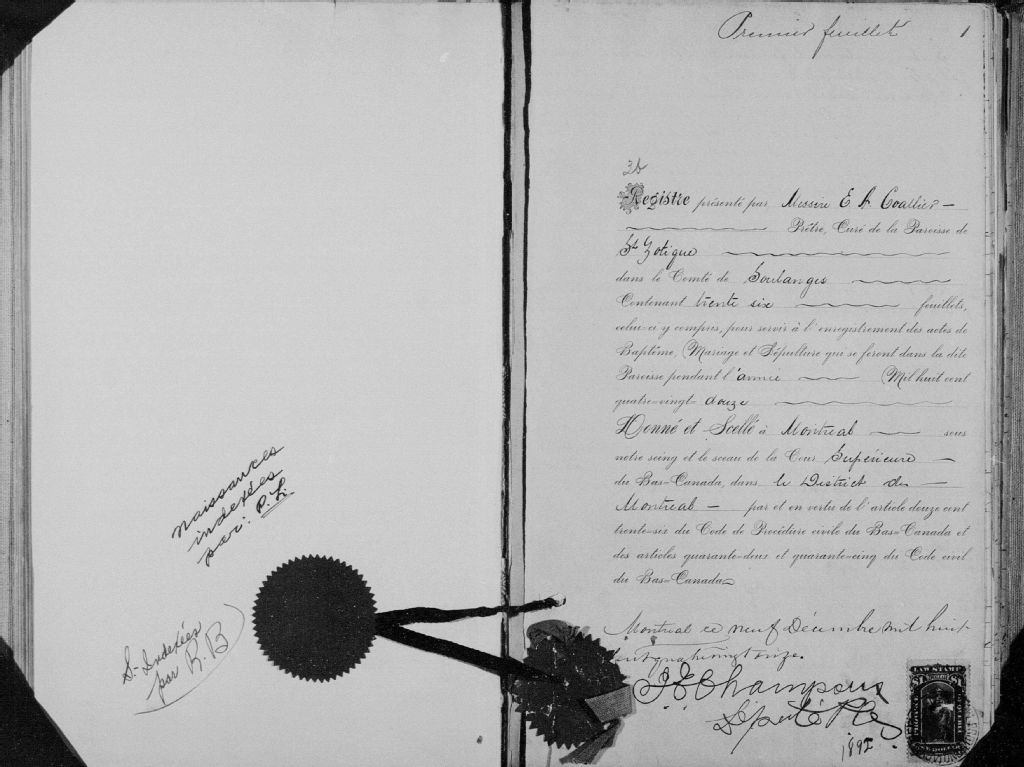 naissances
indexées
par: P. L.
S- Indexées
par R. B
Premier feuillet 1
Registre présenté par Messire E A Coallier
Prêtre, Curé de la Paroisse de
St Zotique
dans le Comté de Soulanges
Contenant trente six feuillets,
celui-ci y compris, pour servir à l'enregistrement des actes de
Baptême, Mariage et Sépulture qui se feront dans la dite
Paroisse pendant l'année Mil huit cent
quatre-vingt- douze
Donné et Scellé à Montreal sous
notre seing et le sceau de la Cour Supérieure
du Bas-Canada, dans le District de
Montreal par et en vertu de l'article douze cent
trente-six du Code de Procédure civile du Bas-Canada et
des articles quarante-deux et quarante-cinq du Code civil
du Bas-Canada
Montreal ce neuf Décembre mil huit
cent quatrevingt onze.
Champoux
Député
1892
LAW STAMP
$1 $1
ONE DOLLAR